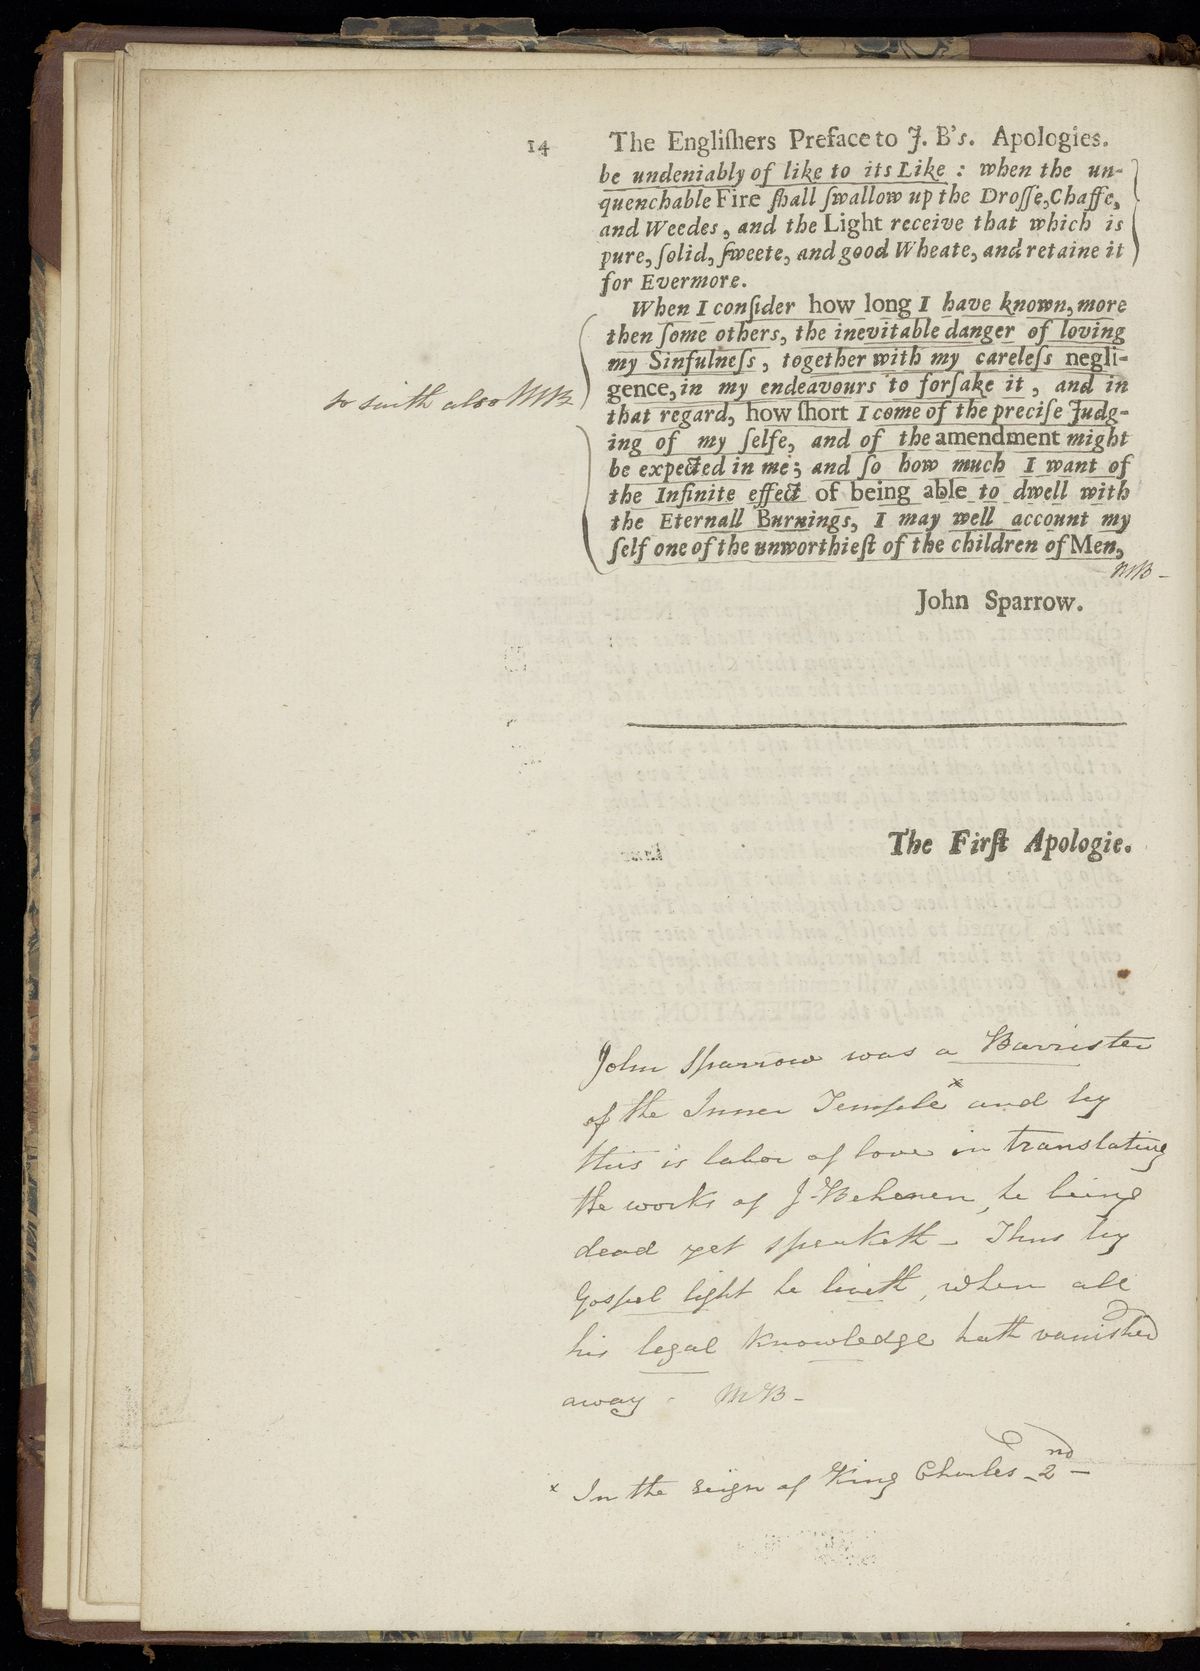 14 The Engliſhers Preface to J. B's. Apologies.
be undeniably of like to its Like : when the un-
quenchable Fire ſhall ſwallow up the Droſſe, Chaffe,
and Weedes, and the Light receive that which is
pure, ſolid, ſweete, and good Wheate, and retaine it
for Evermore.
When I conſider how long I have known, more
then ſome others, the inevitable danger of loving
my Sinfulneſs, together with my careleſs negli-
gence, in my endeavours to forſake it, and in
so saith also MB
that regard, how ſhort I come of the preciſe Judg-
ing of my ſelfe, and of the amendment might
be expected in me; and ſo how much I want of
the Infinite effect of being able to dwell with
the Eternall Burnings, I may well account my
ſelf one of the unworthieſt of the children of Men,
MB -
John Sparrow.
The Firſt Apologie.
John Sparrow was a Barrister
of the Inner Temple x and by
this is labor of love in translating
the works of J. Behmen, he being
dead yet speaketh - Thus by
Gospel light he liveth, when all
his legal knowledge hath vanished
away - MB -
x In the reign of King Charles - 2nd -